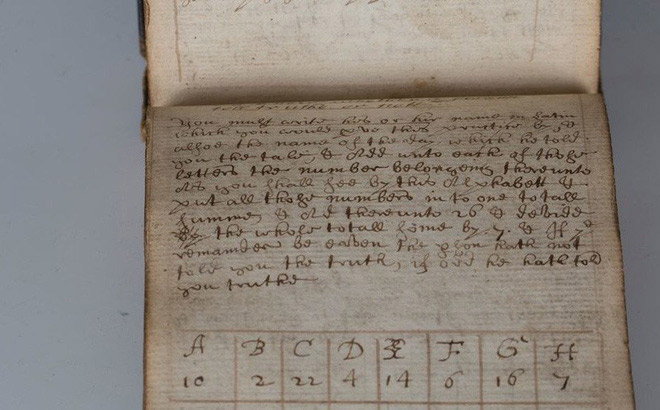 You must write his or her name in Latin
which you would prove this practice by, &
alsoe the name of the day which he told
you the tale, & Add unto each of those
letters the number belonging thereunto
As you shall see by this Alphabett &
put all those numbers in to one totall
summe, & Ad thereunto 26 & devide
the whole totall some by .7. & If ye
remainder be eaven the pson hath not
told you the truth, if odd he hath told
you truthe
A B C D E F G H
10 2 22 4 14 6 16 7